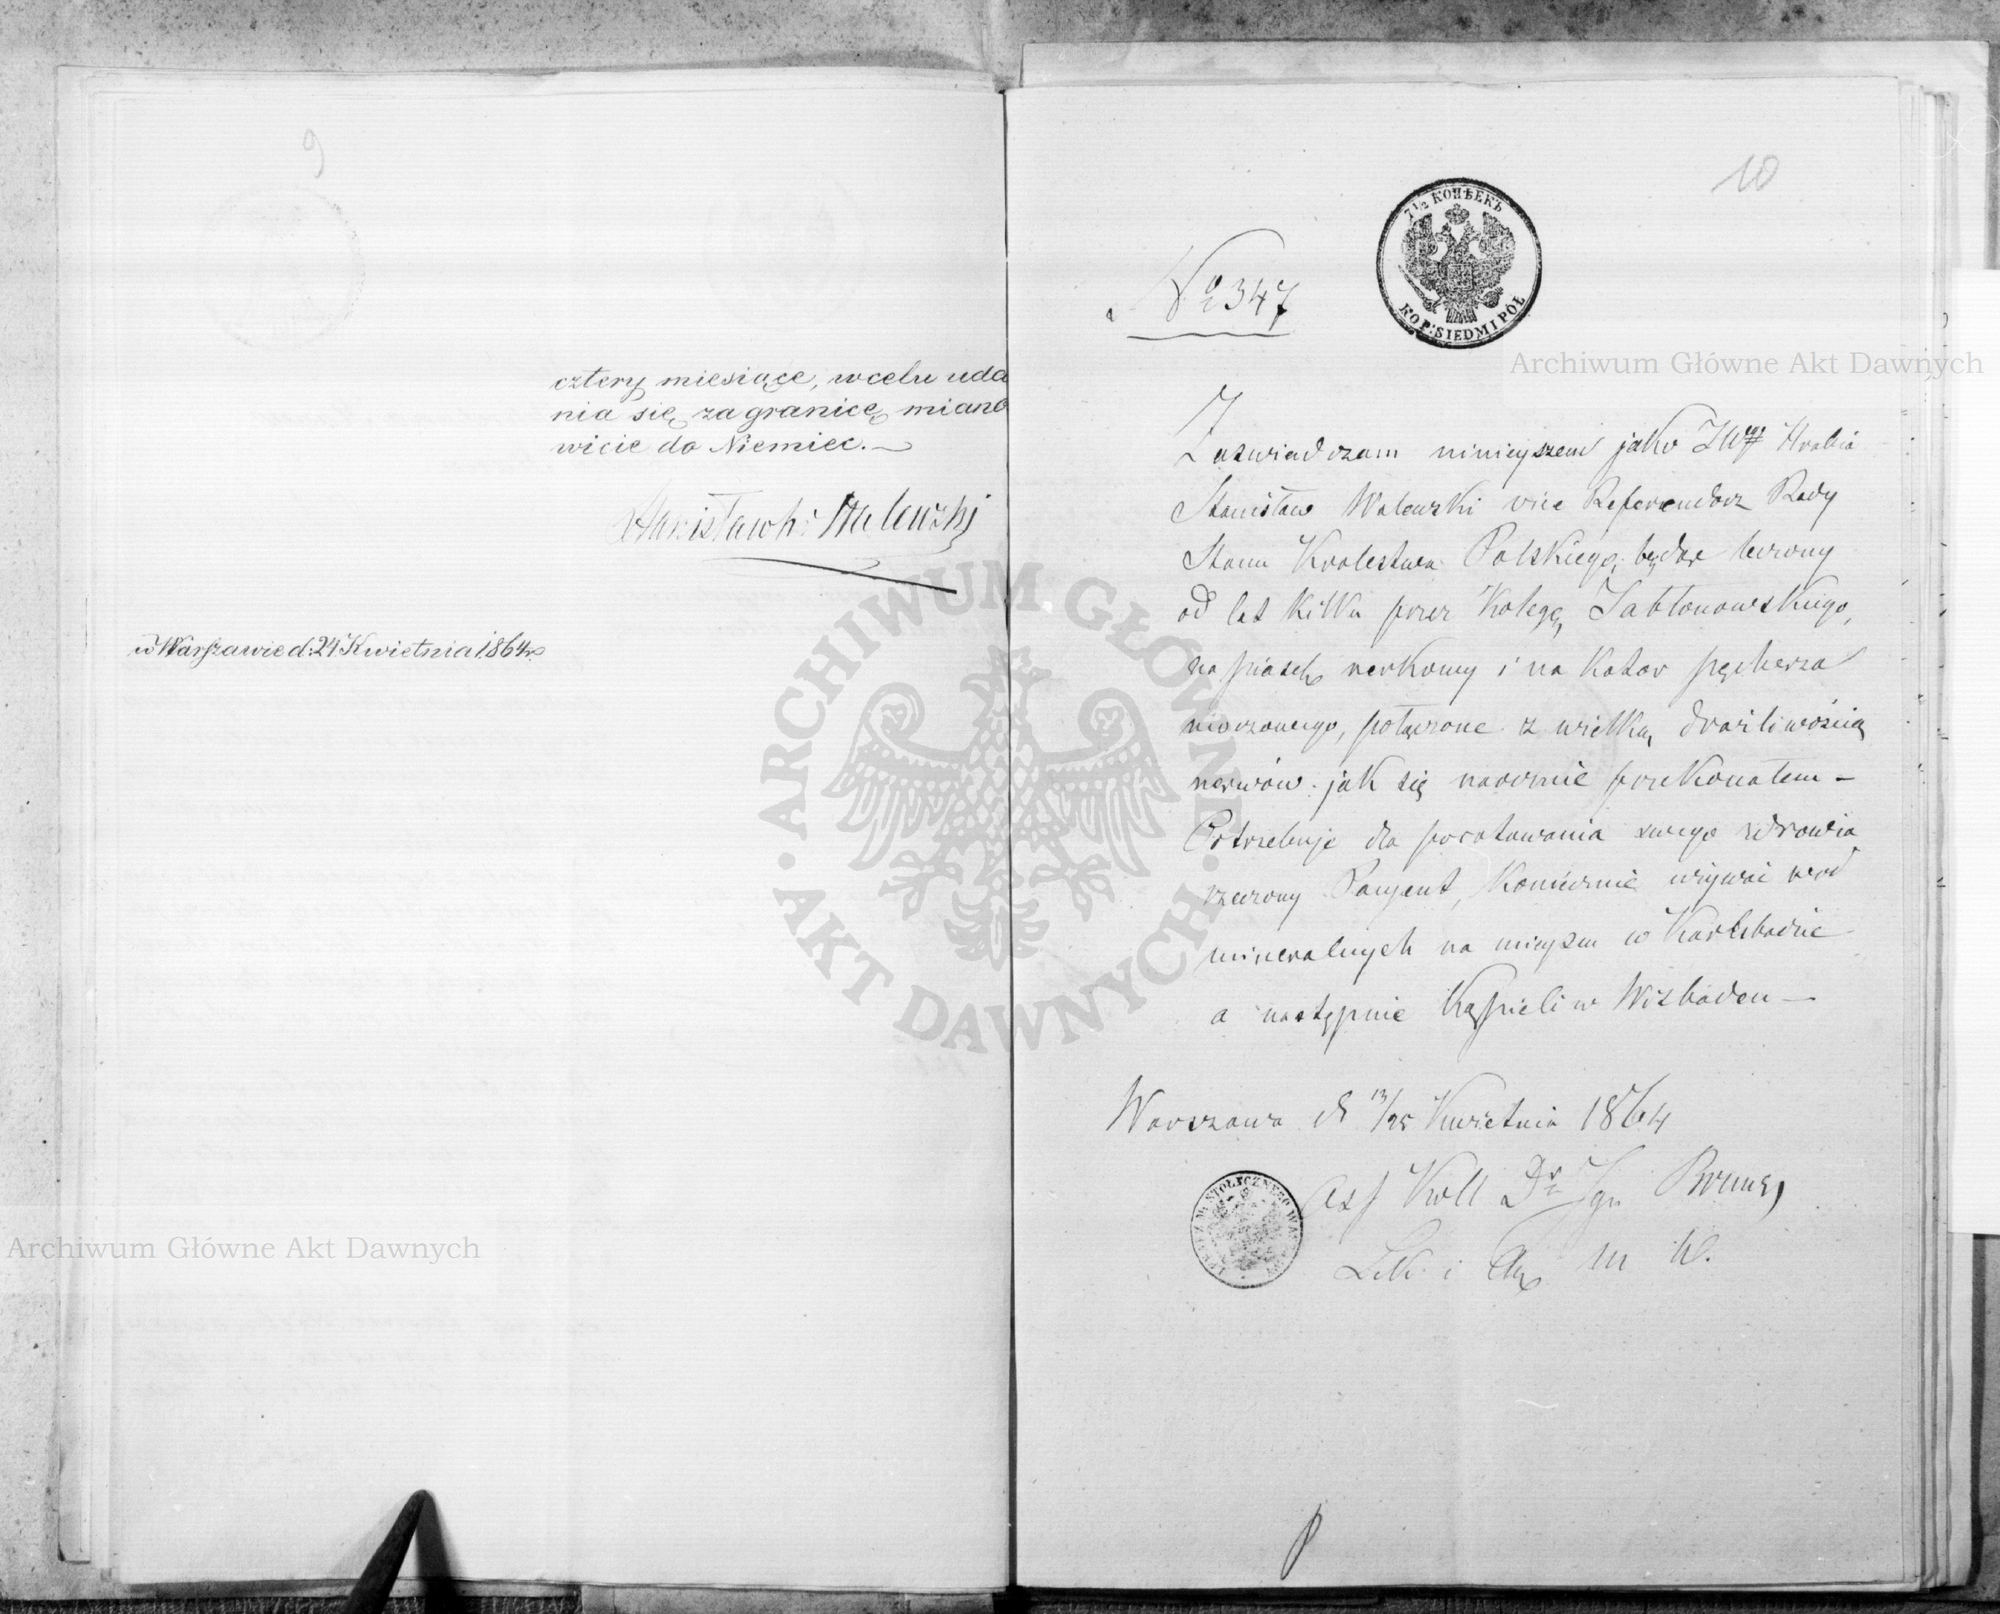 9
cztery miesiące, w celu uda
nia się za granicę miano
wicie do Niemiec.—
Stanisław hr Walewski
w Warszawie d: 24 Kwietnia 1864 r.
10
7½ КОПѢЕКЪ
KOP: SIEDMI PÓŁ
№ 347
Zaświadczam niniejszem jako JWny Hrabia
Stanisław Walewski vice Referendarz Rady
Stanu Krolestwa Polskiego, będąc leczony
od lat kilku przez Kolegę Jabłonowskiego,
na piasek nerkowy i na Katar pęcherza
moczowego, połączone z wielką drażliwością
nerwów jak się naocznie przekonałem —
Potrzebuje dla poratowania swego zdrowia
rzeczony Pacjent, Koniecznie używać wod
mineralnych na miejscu w Karlsbadzie
a następnie Kąpieli w Wisbaden —
Warszawa d 13/25 Kwietnia 1864
Ass Koll Dr Ign Bruner
Lek i m W.
Archiwum Główne Akt Dawnych
Archiwum Główne Akt Dawnych
ARCHIWUM GŁÓWNE
AKT DAWNYCH